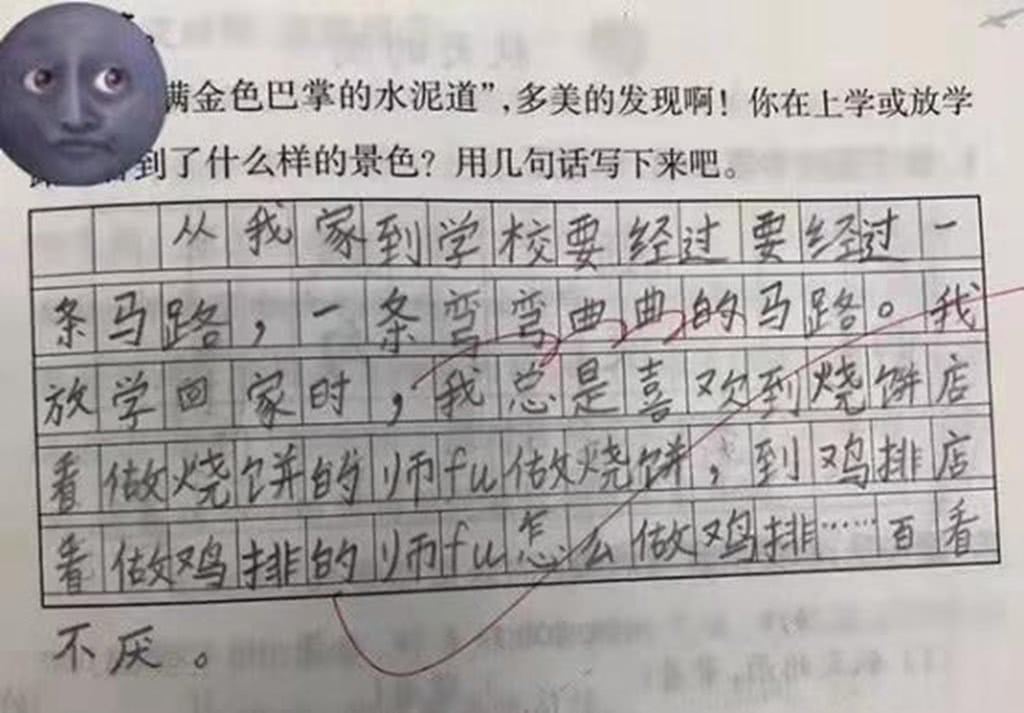 满金色巴掌的水泥道”，多美的发现啊！你在上学或放学
到了什么样的景色？用几句话写下来吧。
从我家到学校要经过要经过一
条马路，一条弯弯曲曲的马路。我
放学回家时，我总是喜欢到烧饼店
看做烧饼的师fu做烧饼，到鸡排店
看做鸡排的师fu怎么做鸡排……百看
不厌。